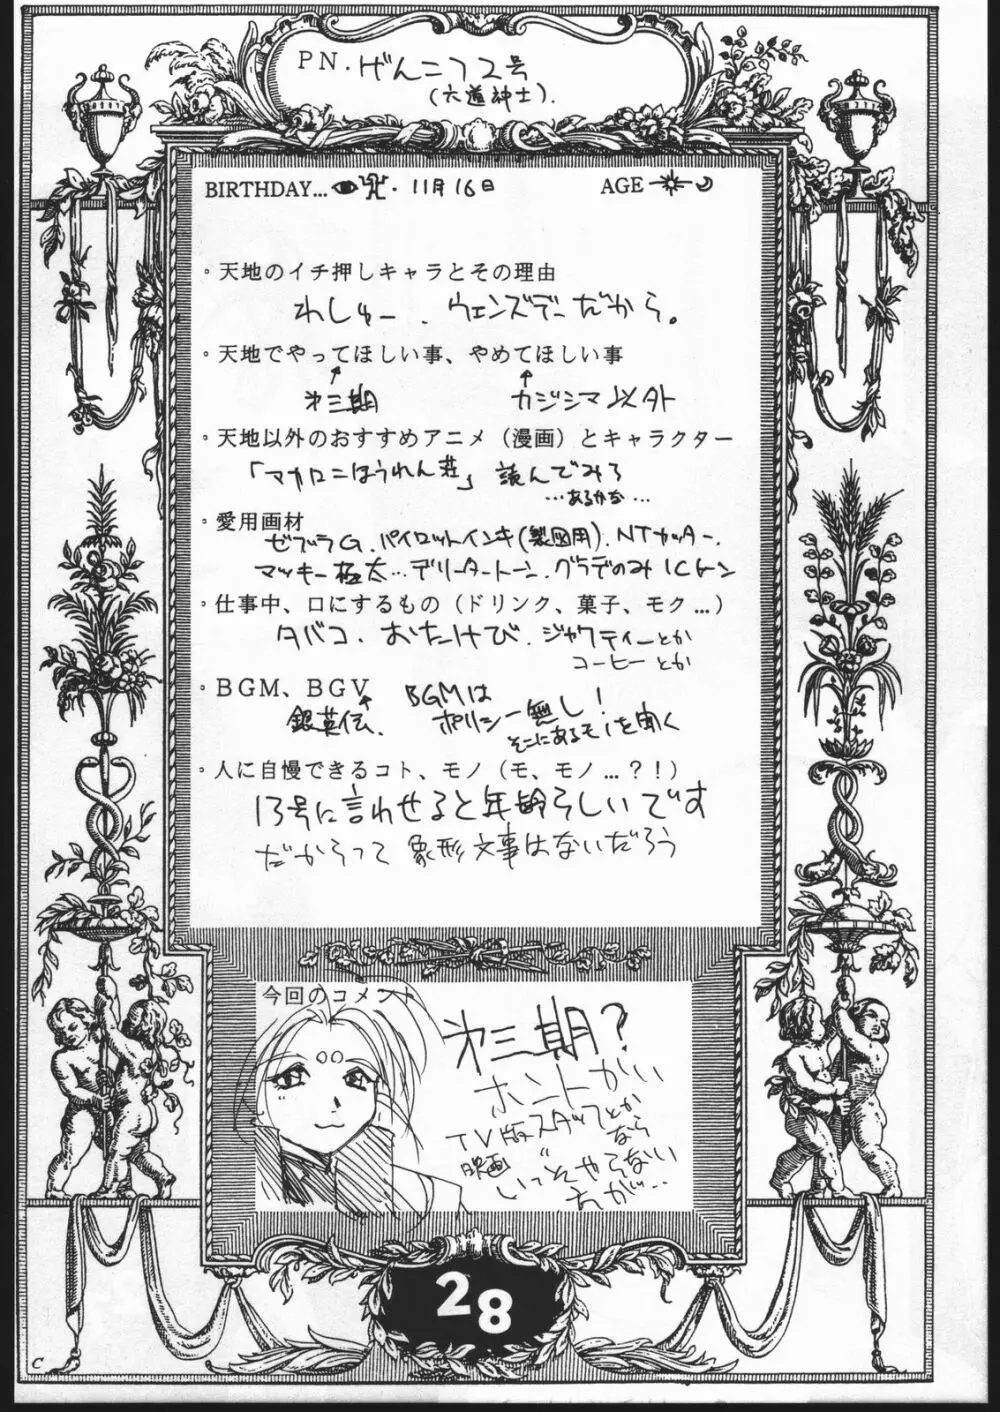 PN. げんこつ2号
(六道紳士).
BIRTHDAY... 11月16日
AGE
・天地のイチ押しキャラとその理由
わしゅー、ウェンズデーだから。
・天地でやってほしい事、やめてほしい事
↑ ↑
オ三期 カジシマ以外
・天地以外のおすすめアニメ（漫画）とキャラクター
「マカロニほうれん荘」読んでみろ
…あるかな…
・愛用画材
ゼブラG、パイロットインキ(製図用)、NTカッター、
マッキー極太…デリータートーン、グラデのみICトーン
・仕事中、口にするもの（ドリンク、菓子、モク…）
タバコ、おたけび、ジャワティーとか
コーヒーとか
・BGM、BGV
↑
銀英伝、
BGMは
ポリシー無し!
そこにあるモノを聞く
・人に自慢できるコト、モノ（モ、モノ…?!）
13号に言わせると年齢らしいです
だからって象形文事はないだろう
今回のコメント
オ三期?
ホントかい
TV版スタッフとか
なら
映画
いっそやらない
ほうが…
28
C